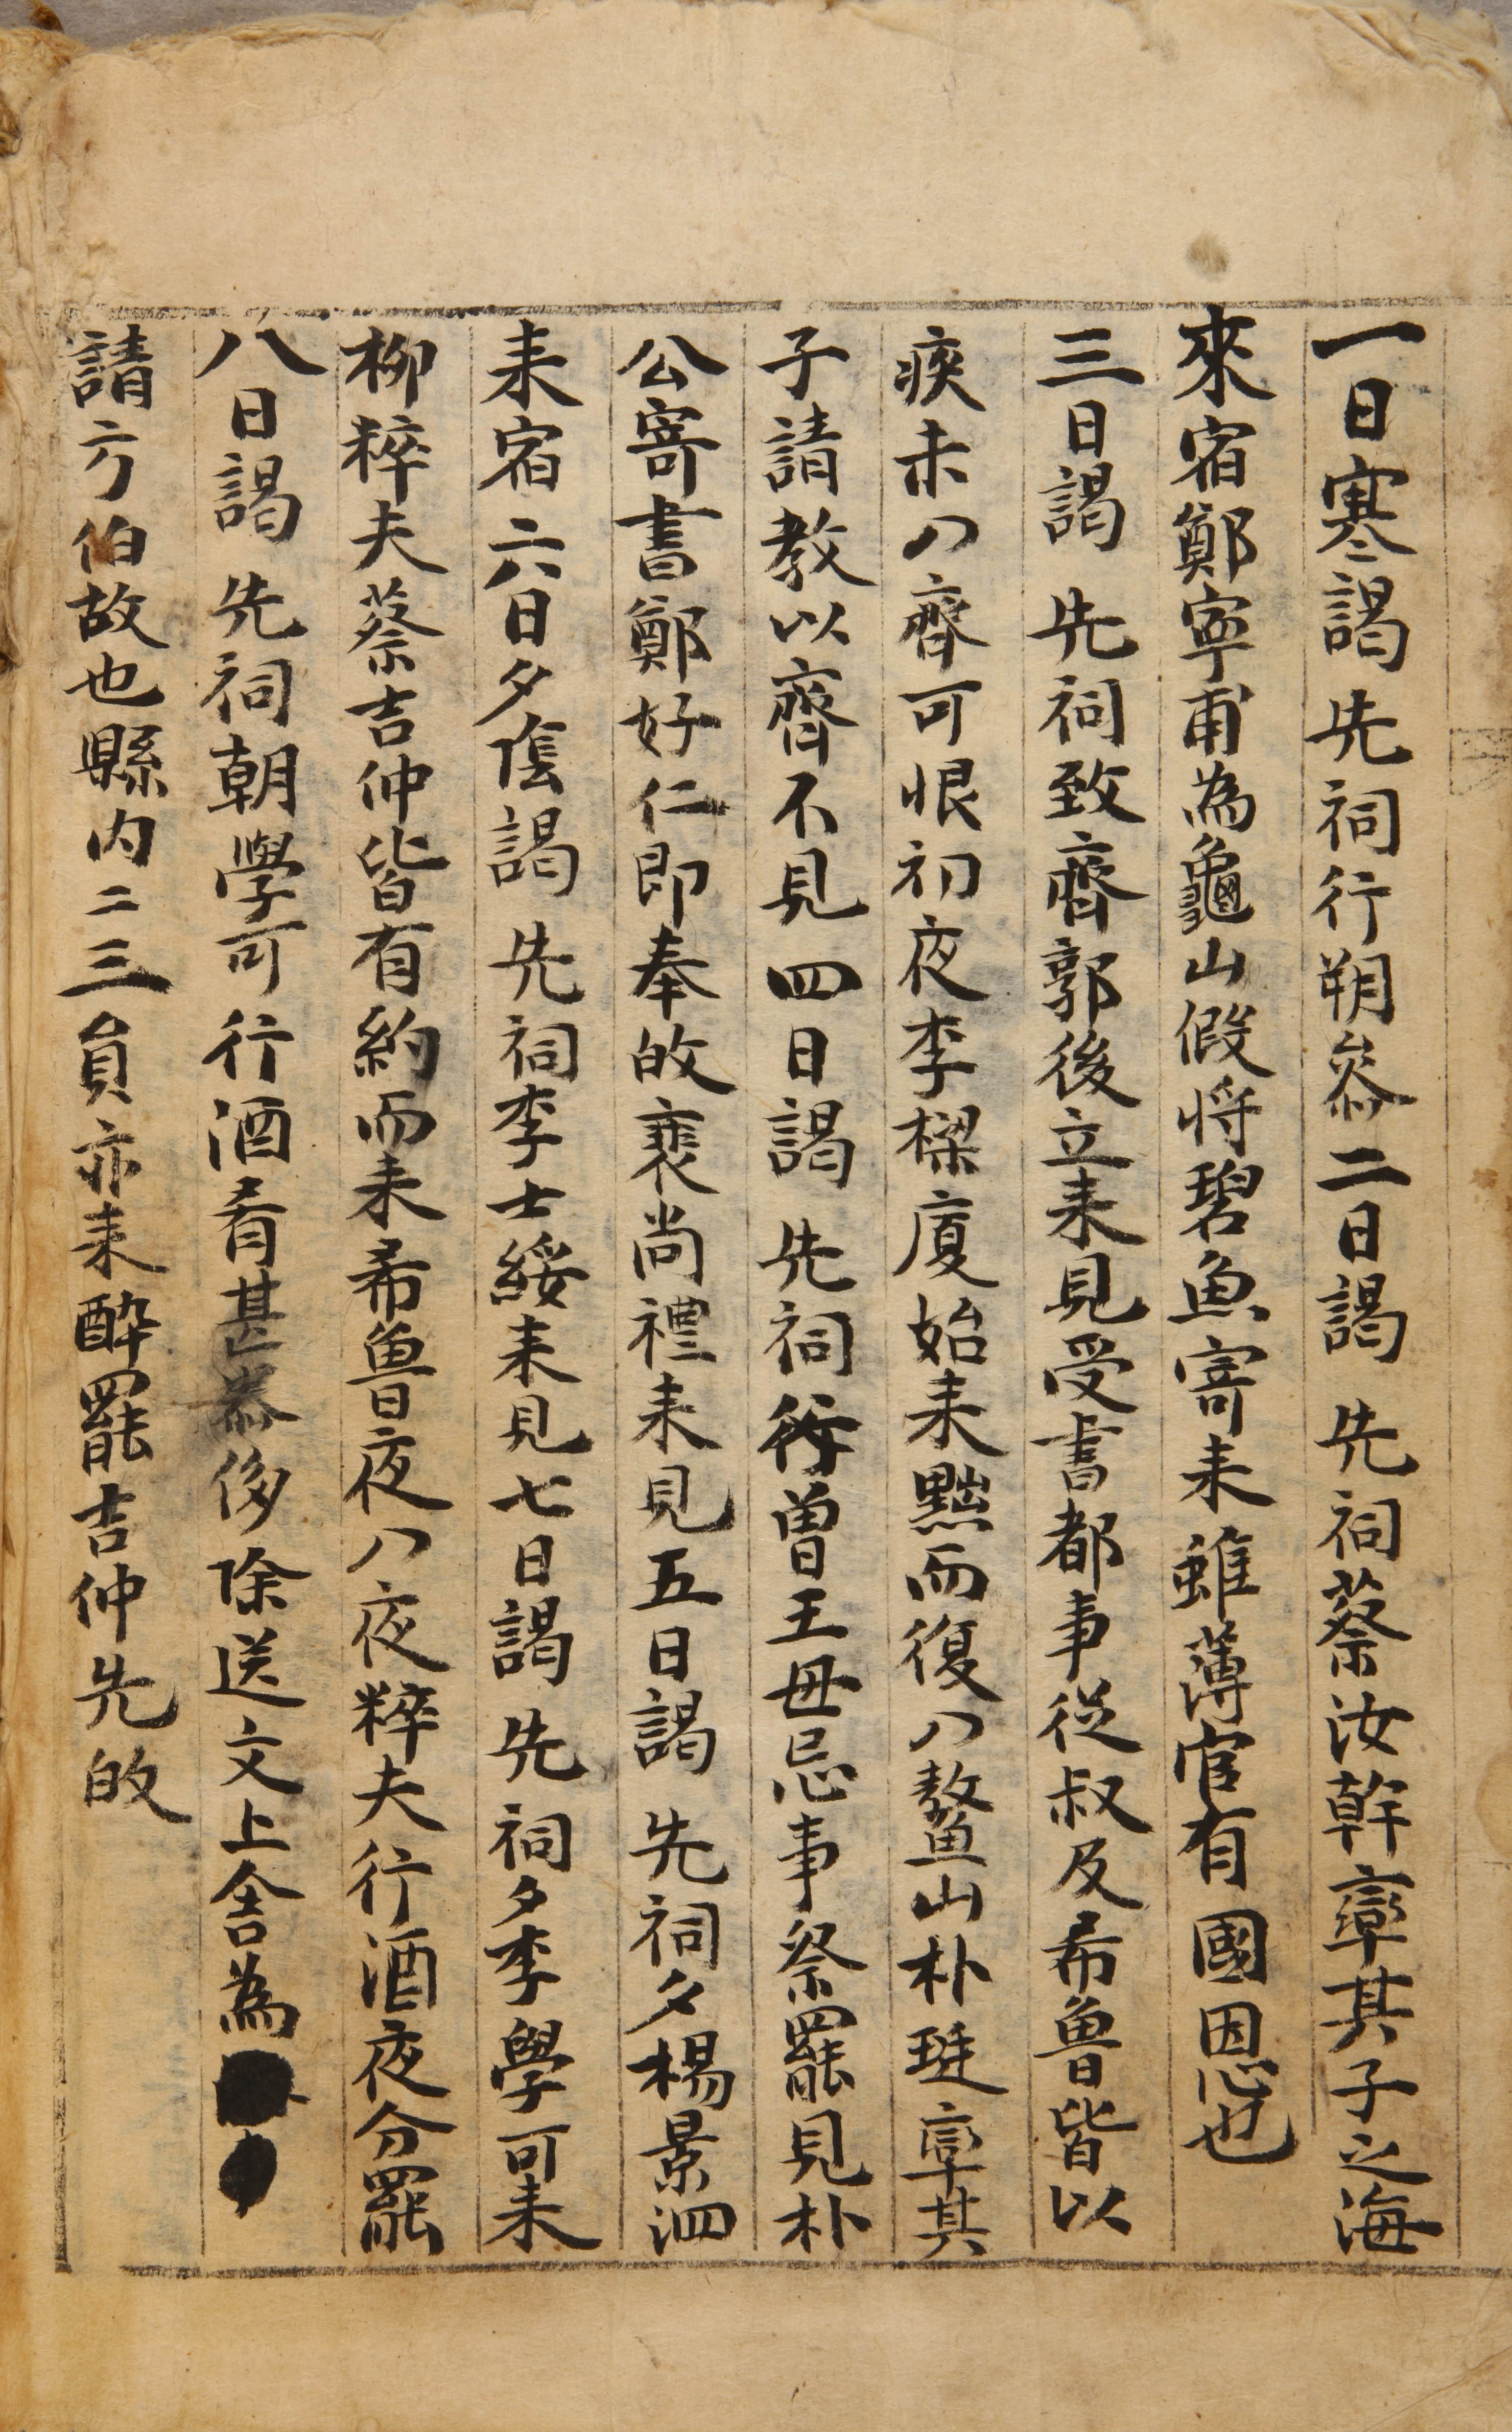 一日寒謁 先祠行朔叅二日謁 先祠蔡汝幹臺其子之海
來宿鄭寧甫為龜山假將碧魚寄来雖薄官有 國恩也
三日謁 先祠致齊郭後立来見受書都事從叔及希魯皆以
疾未入齊可恨初夜李樑廈始来黙而復入鰲山朴珽率其
子請教以齊不見四日謁 先祠行曽王毋忌事祭罷見朴
公寄書鄭好仁即奉敀裵尚禮来見五日謁 先祠夕楊景泗
来宿六日夕陰謁 先祠李士綏来見七日謁 先祠夕李學可来
柳粹夫蔡吉仲皆有約而来希魯夜入夜粹夫行酒夜分罷
八日謁 先祠朝學可行酒肴甚侈除送文上舍為
請方伯故也縣内二三員亦来酔罷吉仲先敀